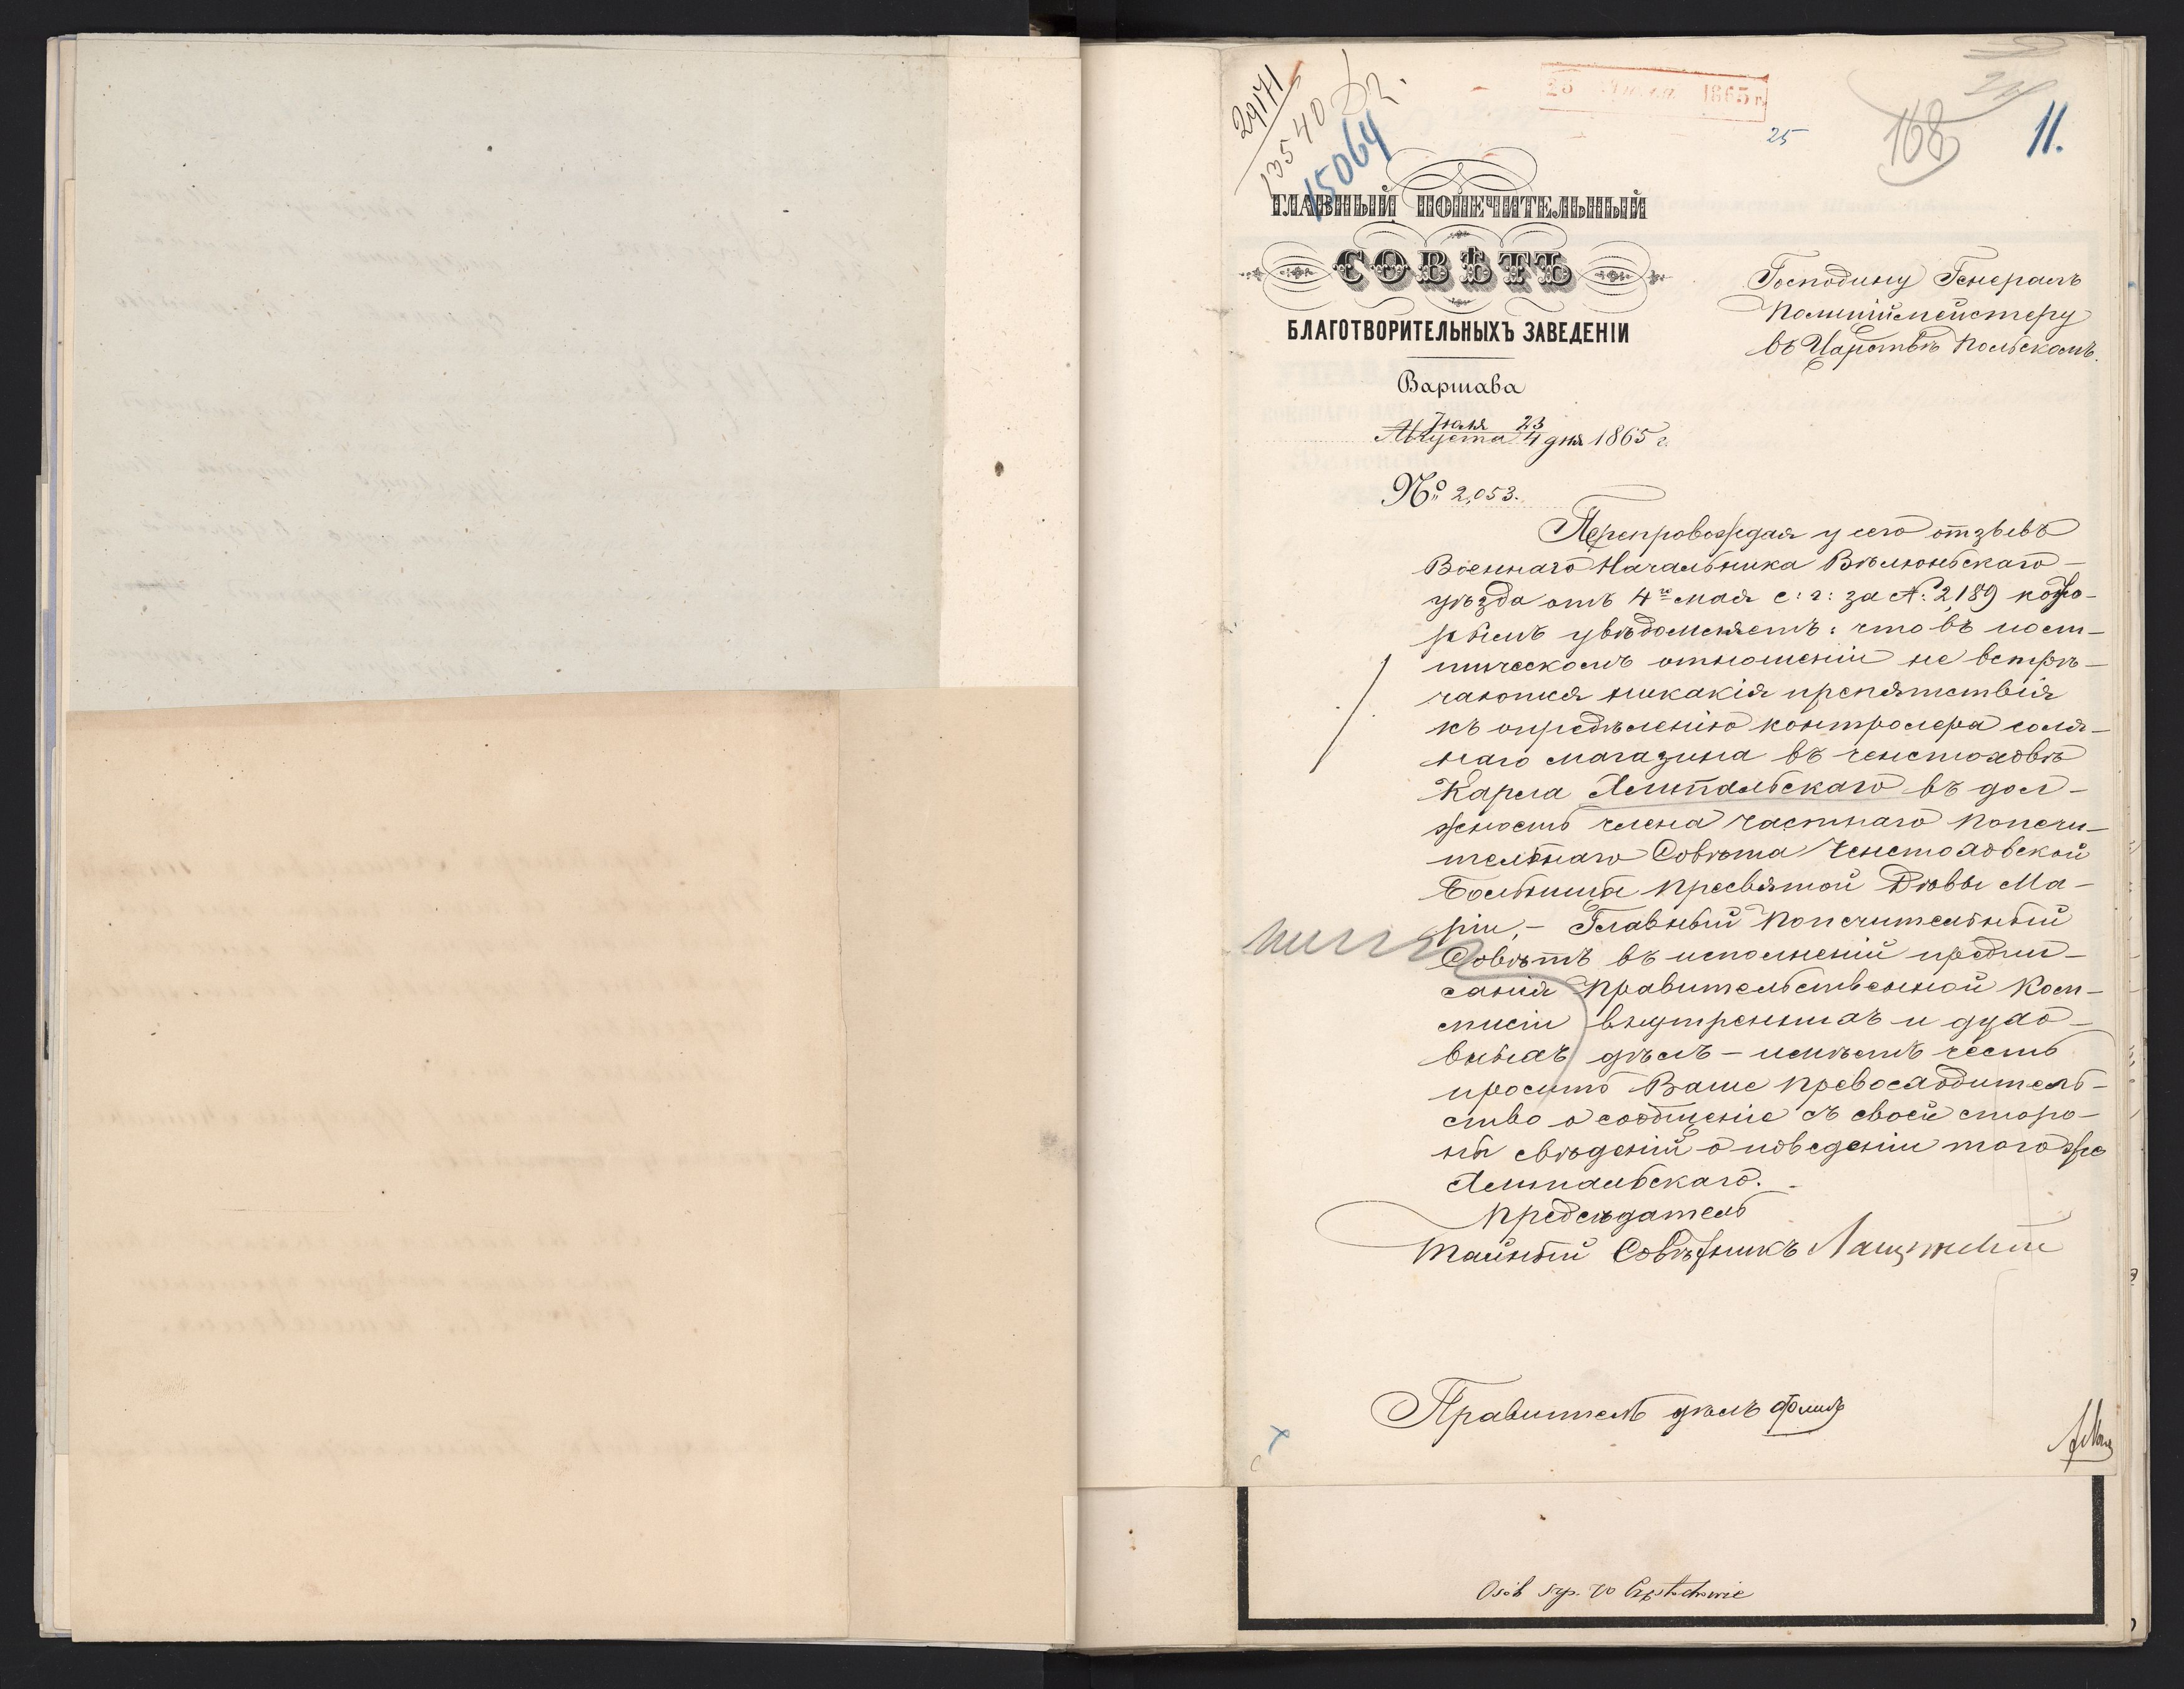 29171
13540
15064
23 Июля 1865 г.
25
168
11.
ГЛАВНЫЙ ПОПЕЧИТЕЛЬНЫЙ
СОВѢТЪ
БЛАГОТВОРИТЕЛЬНЫХЪ ЗАВЕДЕНІИ
Варшава
Іюля 23
Августа 4 дня 1865 г.
№ 2,053.
Господину Генералъ
Полиціймейстеру
въ Царствѣ Польскомъ.
Препровождая у сего отзывъ
Военнаго Начальника Вѣлюньскаго
уѣзда отъ 4го мая с: г: за №: 2,189 кото-
рымъ увѣдомляетъ: что въ поли-
тическомъ отношеніи не встрѣ-
чаются никакія препятствія
къ опредѣленію контролера соля-
наго магазина въ Ченстоховѣ
Карла въ дол-
жность члена частнаго Попечи-
тельнаго Совѣта Ченстоховской
Больницы Пресвятой Дѣвы Ма-
ріи, - Главный Попечительный
Совѣтъ въ исполненіи предпи-
санія Правительственной Ком-
мисіи внутреннихъ и духо-
вныхъ дѣлъ - имѣетъ честь
просить Ваше Превосходитель-
ство о сообщеніе съ своей сторо-
ны свѣденій о поведеніи того же
Предсѣдатель
Тайный Совѣтникъ
Правитель дѣлъ
Osób szp. w Częstochowie